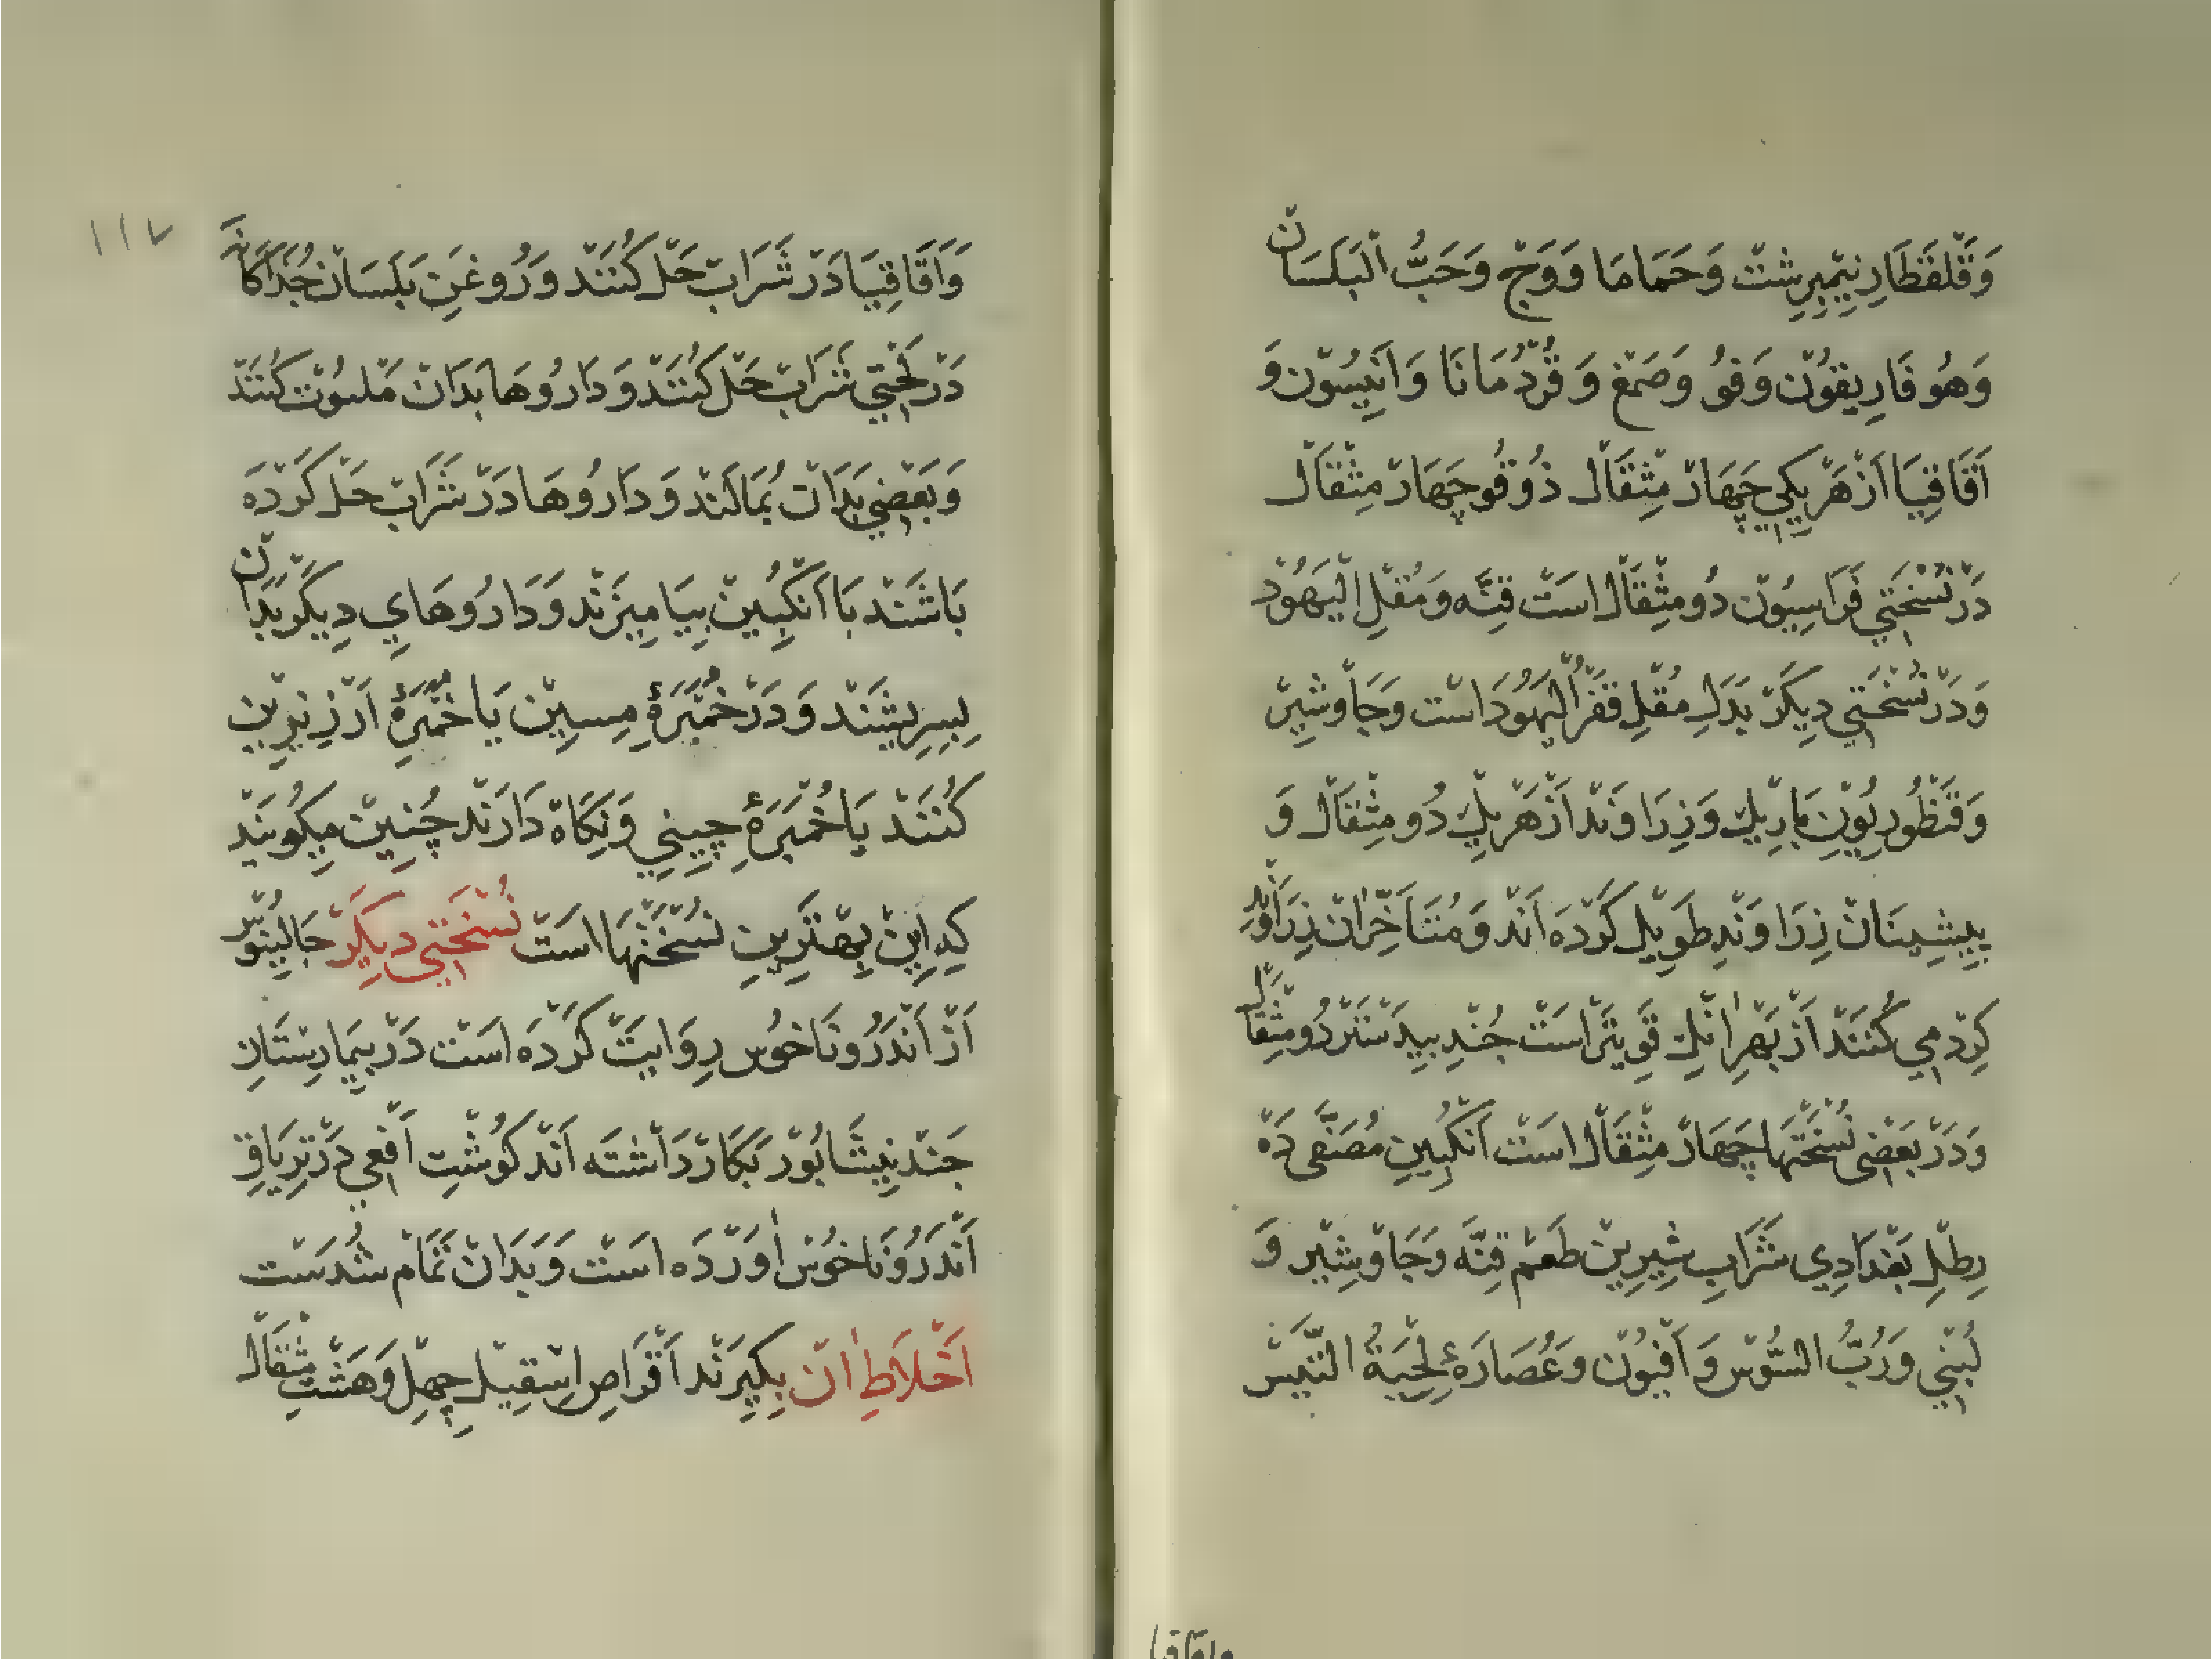 وَقَلْقَطَارِ نِيمْبِرِشْتْ وَحَمَامَا وَوَجْ وَحَبُّ الْبَلَسَانْ
وَهُوفَارِيقُونْ وَفُو وَصَمْغ وَ قُرْدُمَانَا وَاَنِيسُون وَ
اَقَاقِيَا اَزْ هَرْ يِكِي چَهَارْ مِثْقَالْ ذُوقُو چَهَارْ مِثْقَالْ
دَرْ نُسْخَتِي فَرَاسِيُونْ دُو مِثْقَالْ اسَتْ قِنَّه وَمُقْلِ الْيَهُودْ
وَدَرْ نُسْخَتِي دِيكَرْ بَدَلِ مُقْلِ قَفْرُ الْيَهُودَ اسْت وَجَاْوشِيرْ
وَقَنْطُورِيُونِ بَارِيكْ وَزِرَاوَنْدْ اَزْ هَرْ يِكْ دُو مِثْقَالْ وَ
پِيشِينَانْ زِرَاوَنْدِ طَوِيلْ كَرْدَه اَنْد وَمُتَأَخِّرَانْ زِرَاوَنْدِ
كِرْدْ مِي كُنَنَدْ اَزْ بَهْرِ انْكِ قَوِيتَرْ اسَتْ جُنْدِ بِيدَسْتَرْ دُو مِثْقَالْ
وَدَرْ بَعْضِي نُسْخَتْهَا چَهَارْ مِثْقَالْ اسَتْ اَنْكُبِينِ مُصَفَّى دَهْ
رِطْلِ بَغْدَادِي شَرَابِ شِيرِينْ طَعْم قِنَّه وَجَاوْشِيْر وَ
لُبْنِي وَرُبُّ السُّوْس وَ اَفْيُوْن وَعُصَارَهٔ لِحْيَةُ التَّيْسْ
واقاقیا
١١٧
وَاَقَاقِيَا دَرْ شَرَابْ حَلْ كُنَنَدْ وَ رُوغَنِ بَلَسَانْ جُدَاكَانَه
دَرْ لَخْتِي شَرَابْ حَلْ كُنَنَدْ وَ دَارُوهَا بَدَانْ مَلْتُوتْ كُنَنَدْ
وَبَعْضِي بَدَانْ بُمَالَنْد وَ دَارُوهَا دَرْ شَرَابْ حَلْ كَرْدَه
بَاشَنْد بَا اَنْكُبِينْ بِيَامِيزَنْد وَ دَارُوهَايِ دِيكَرْ بَدَانْ
بِسِرِيشَنْد وَ دَرْ خُمْبَرَهٔ مِسِينْ يَا خُمْبَرَهٔ اَرْزِيزِين
كُنَنَدْ يَا خُمْبَرَهٔ چِينِي وَنِكَاهْ دَارَنْد چُنِينْ مِيكُويَنْد
كِه اِينْ بِهْتَرِينِ نُسْخَتْهَا اسَتْ نُسْخَتِي دِيكَرْ جَالِينُوسْ
اَزْ اَنْدَرُونَاخُوس رِوَايَتْ كَرْدَه اسَتْ دَرْ بِيمَارِسْتَانِ
جَنْد نِيشَابُورْ بَكَارْ دَاشْتَه اَنْد كُوشْتِ اَفْعِي دَرْ تِرْيَاقِ
اَنْدَرُونَاخُوسْ اوَرْدَه اسَتْ وَ بَدَانْ تَمَامْ شُدَسْت
اَخْلاَطِ انْ بِكِيرَنْد اَقْرَاصِ اِسْقِيلْ چِهِلْ وَهَشْتْ مِثْقَالْ